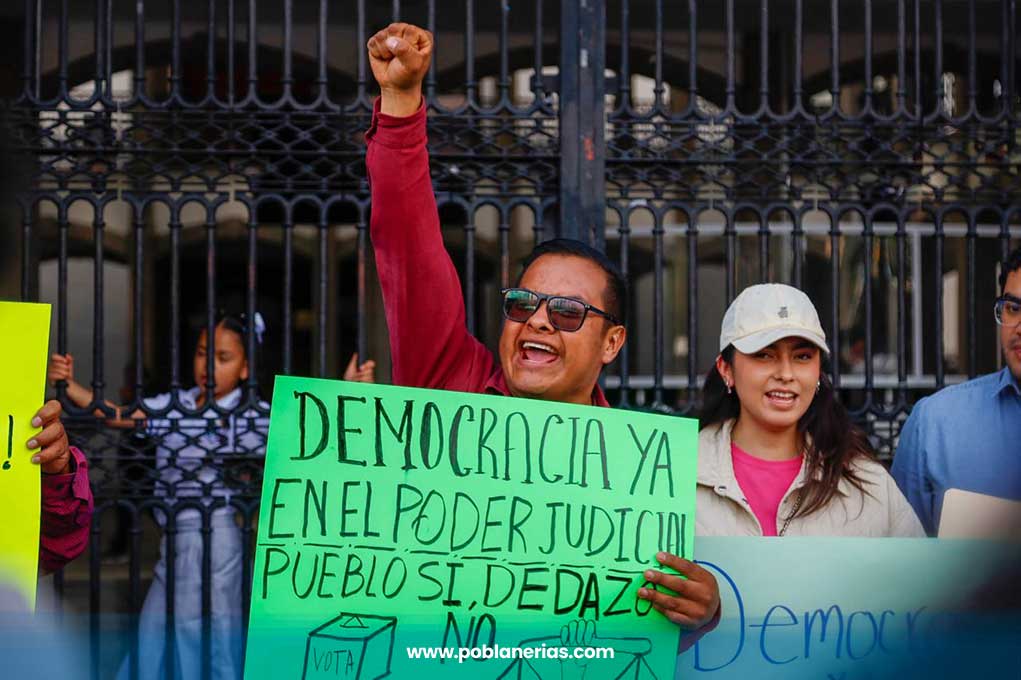 !
DEMOCRACIA YA
EN EL PODER JUDICIAL
PUEBLO SI, DEDAZO
NO
VOTA
Democr
www.poblanerias.com